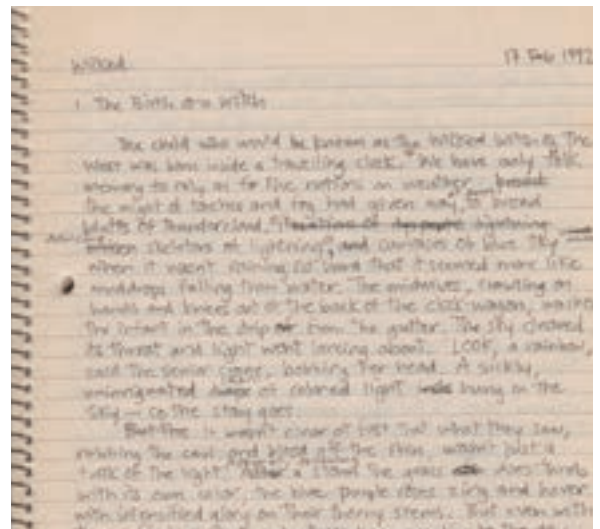 Wicked 17 Feb 1992
1. The Birth of a Witch
The child who would be known as the Wicked Witch of The
West was born inside a travelling clock. We have only folk
memory to rely on for the notions on weather
the night of torches and fog had given way, to broad
of thundercloud,
skeletons of lightning, and of blue sky
when it wasn't raining so hard that it seemed more like
mud drops falling than water. The midwives, crawling on
hands and knees out of the back of the clock-wagon, washed
the infant in the drip from the gutter. The sky cleared
its throat and light went lancing about. LOOK, a rainbow,
said the senior crone, bobbing her head. A sickly,
of colored light hung in the
sky — so the story goes.
It wasn't clear at first that what they saw,
rubbing the caul and blood off the skin, wasn't just a
trick of the light. After a storm the grass does
with its own color, the blue purple roses zing and hover
with intensified glory on their thorny stems. But even with